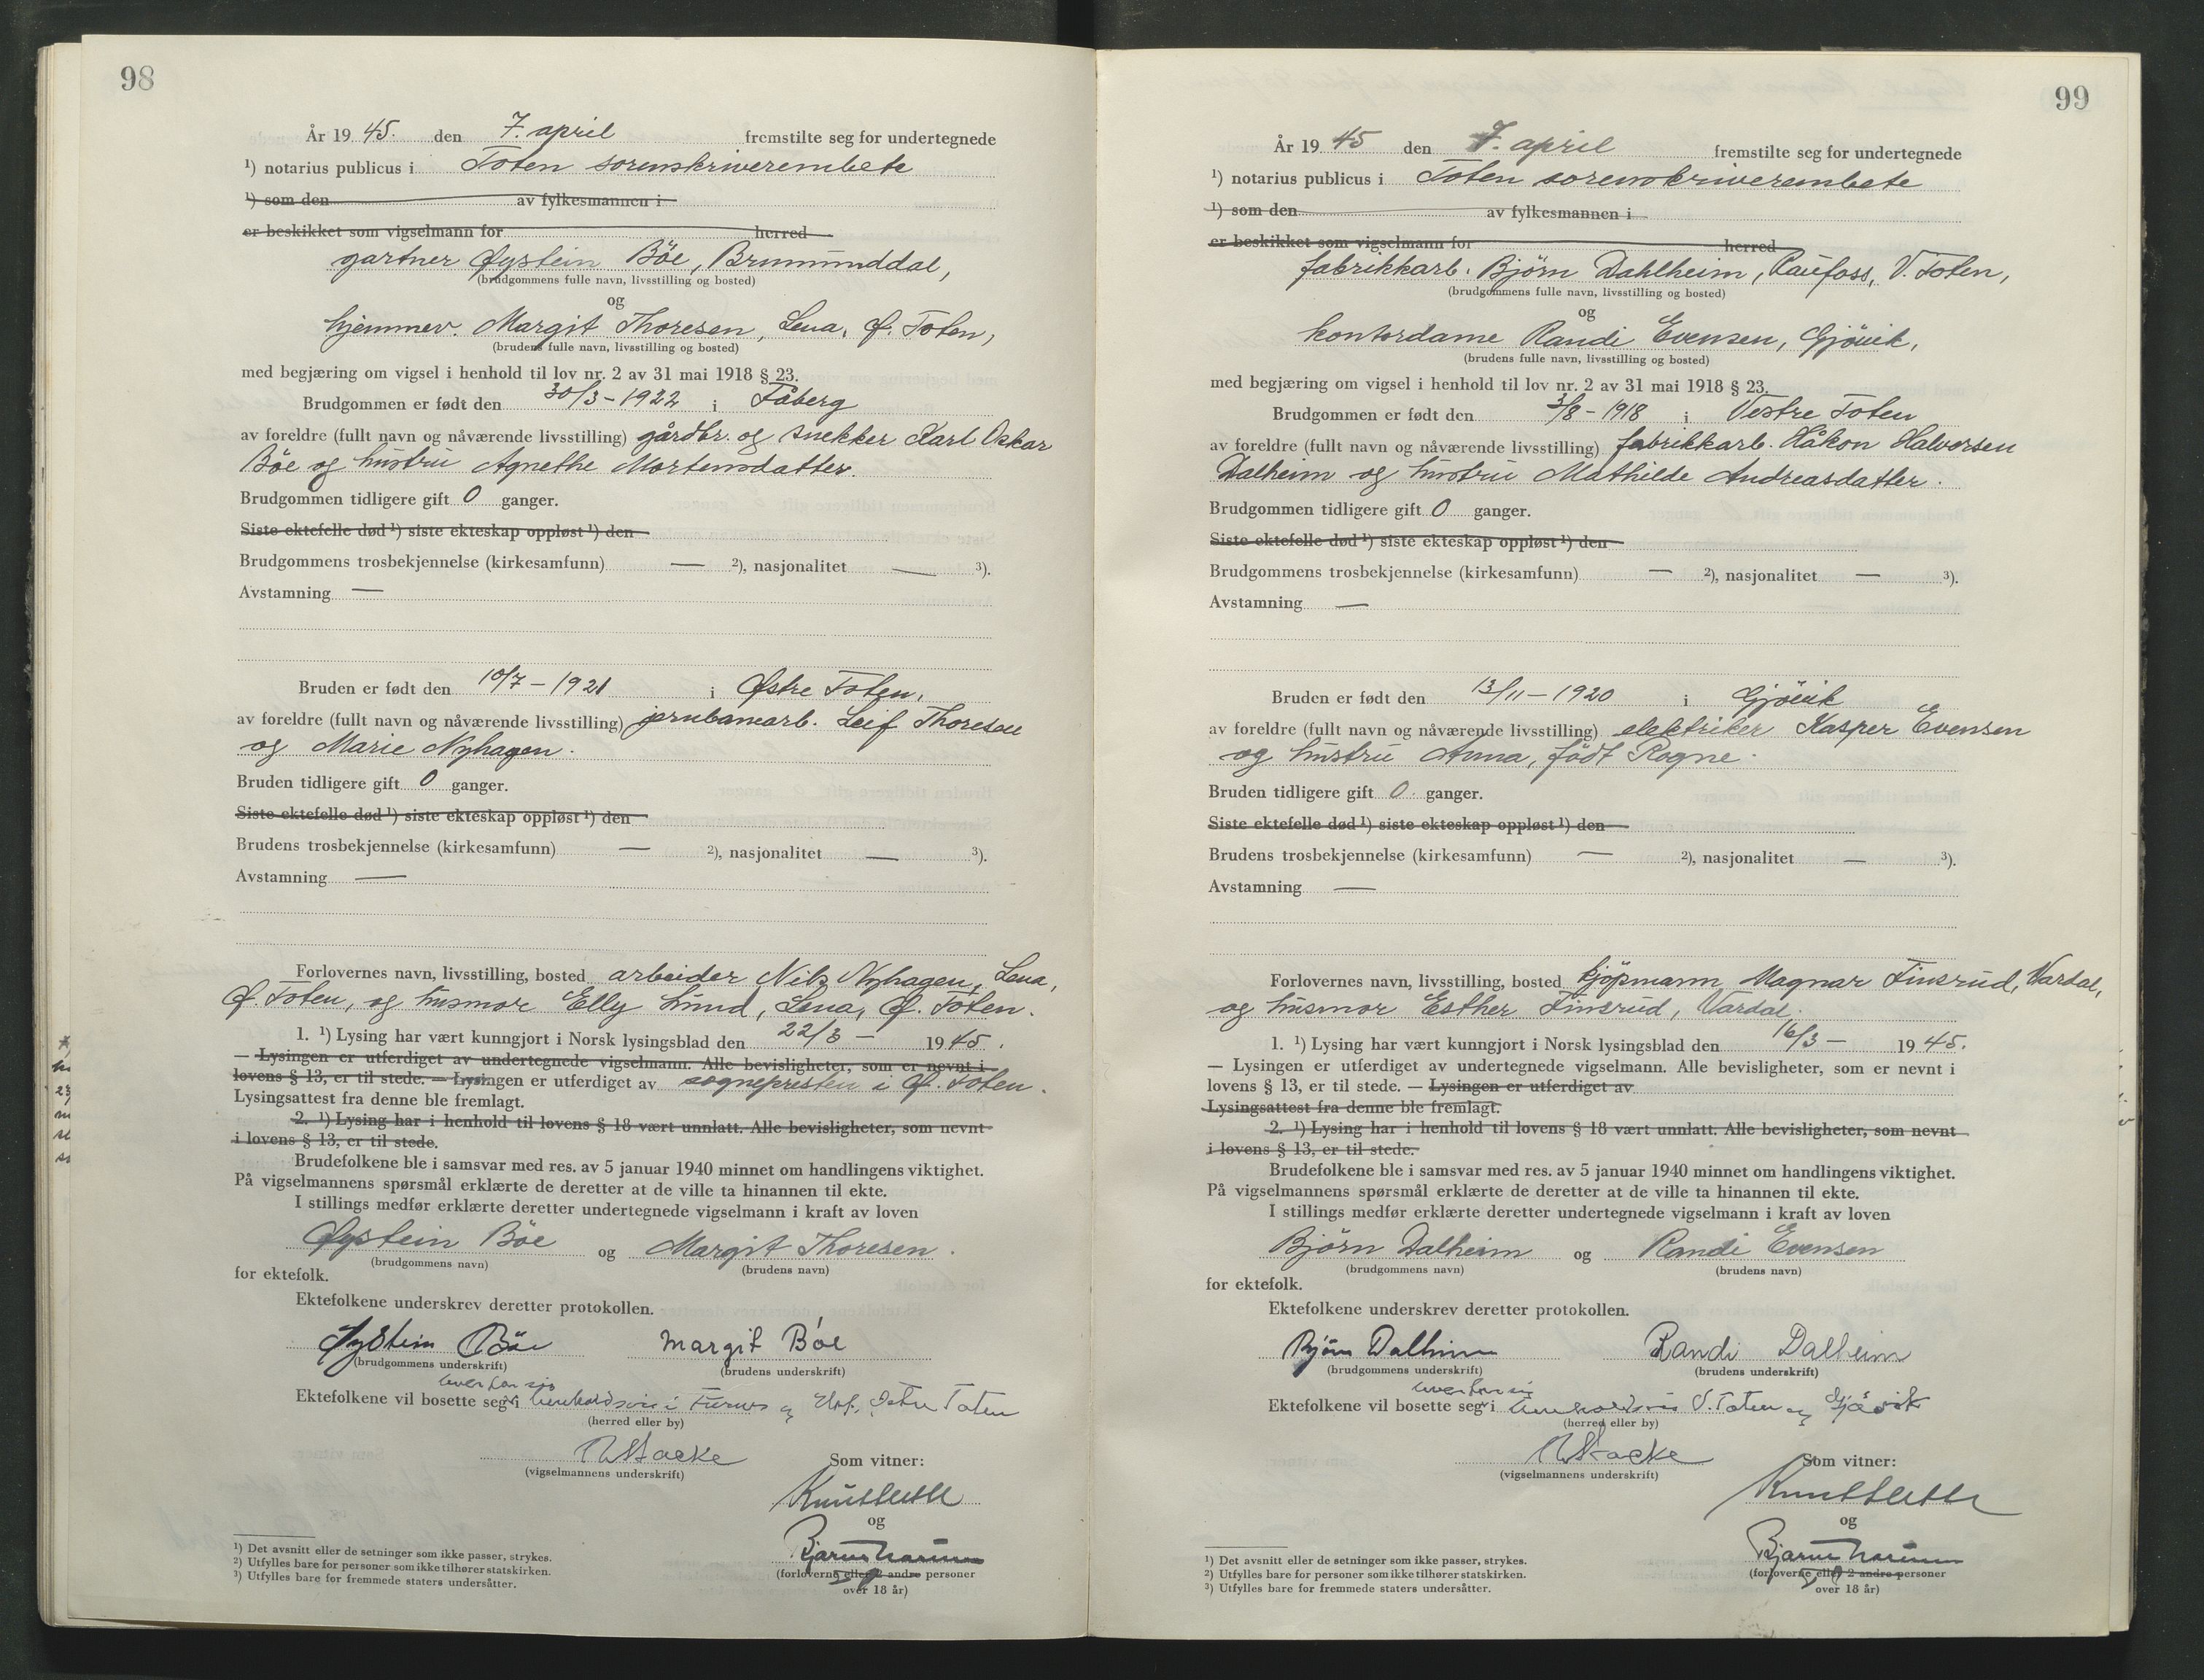 98
År 1945. den 7. april fremstilte seg for undertegnede
¹) notarius publicus i Toten sorenskriverembete
¹) som den av fylkesmannen i
er beskikket som vigselmann for herred
gartner Øystein Böe, Brummunddal,
(brudgommens fulle navn, livsstilling og bosted)
og
hjemmev. Margit Thoresen, Lena, Ø. Toten,
(brudens fulle navn, livsstilling og bosted)
med begjæring om vigsel i henhold til lov nr. 2 av 31 mai 1918 § 23.
Brudgommen er født den 30/3 - 1922 i Fåberg
av foreldre (fullt navn og nåværende livsstilling) gårdbr. og snekker Karl Oskar
Böe og hustru Agnethe Mortensdatter.
Brudgommen tidligere gift 0 ganger.
Siste ektefelle død ¹) siste ekteskap oppløst ¹) den
Brudgommens trosbekjennelse (kirkesamfunn) — ²), nasjonalitet — ³).
Avstamning —
Bruden er født den 10/7 - 1921 i Østre Toten,
av foreldre (fullt navn og nåværende livsstilling) jernbanearb. Leif Thoresen
og Marie Nyhagen.
Bruden tidligere gift 0 ganger.
Siste ektefelle død ¹) siste ekteskap oppløst ¹) den
Brudens trosbekjennelse (kirkesamfunn) — ²), nasjonalitet — ³).
Avstamning —
Forlovernes navn, livsstilling, bosted arbeider Nils Nyhagen, Lena,
Ø. Toten, og husmor Elly Lund, Lena, Ø. Toten.
1. ¹) Lysing har vært kunngjort i Norsk lysingsblad den 22/3 - 1945.
— Lysingen er utferdiget av undertegnede vigselmann. Alle bevisligheter, som er nevnt i
lovens § 13, er til stede. — Lysingen er utferdiget av sognepresten i Ø. Toten.
Lysingsattest fra denne ble fremlagt.
2. ¹) Lysing har i henhold til lovens § 18 vært unnlatt. Alle bevisligheter, som nevnt
i lovens § 13, er til stede.
Brudefolkene ble i samsvar med res. av 5 januar 1940 minnet om handlingens viktighet.
På vigselmannens spørsmål erklærte de deretter at de ville ta hinannen til ekte.
I stillings medfør erklærte deretter undertegnede vigselmann i kraft av loven
Øystein Böe og Margit Thoresen.
(brudgommens navn) (brudens navn)
for ektefolk.
Ektefolkene underskrev deretter protokollen.
Øystein Böe Margit Böe
(brudgommens underskrift) (brudens underskrift)
hver for sig
Ektefolkene vil bosette seg i henholdsvis i Furnes og Østre Toten
(herred eller by)
(vigselmannens underskrift)
Som vitner:
og
(forloverne eller 2 andre personer
over 18 år)
¹) Det avsnitt eller de setninger som ikke passer, strykes.
²) Utfylles bare for personer som ikke tilhører statskirken.
³) Utfylles bare for fremmede staters undersåtter.
99
År 1945 den 7. april fremstilte seg for undertegnede
¹) notarius publicus i Toten sorenskriverembete
¹) som den av fylkesmannen i
er beskikket som vigselmann for herred
fabrikkarb. Bjørn Dahlheim, Raufoss, V. Toten,
(brudgommens fulle navn, livsstilling og bosted)
og
kontordame Randi Evensen, Gjövik,
(brudens fulle navn, livsstilling og bosted)
med begjæring om vigsel i henhold til lov nr. 2 av 31 mai 1918 § 23.
Brudgommen er født den 3/8 - 1918 i Vestre Toten
av foreldre (fullt navn og nåværende livsstilling) fabrikkarb. Håkon Halvorsen
Dalheim og hustru Mathilde Andreasdatter.
Brudgommen tidligere gift 0 ganger.
Siste ektefelle død ¹) siste ekteskap oppløst ¹) den
Brudgommens trosbekjennelse (kirkesamfunn) — ²), nasjonalitet — ³).
Avstamning —
Bruden er født den 13/11 - 1920 i Gjövik
av foreldre (fullt navn og nåværende livsstilling) elektriker Kasper Evensen
og hustru Anna, född Rogne.
Bruden tidligere gift 0 ganger.
Siste ektefelle død ¹) siste ekteskap oppløst ¹) den
Brudens trosbekjennelse (kirkesamfunn) — ²), nasjonalitet — ³).
Avstamning —
Forlovernes navn, livsstilling, bosted kjöpmann Magnar Finsrud, Vardal,
og husmor Esther Finsrud, Vardal.
1. ¹) Lysing har vært kunngjort i Norsk lysingsblad den 16/3 - 1945.
— Lysingen er utferdiget av undertegnede vigselmann. Alle bevisligheter, som er nevnt i
lovens § 13, er til stede. — Lysingen er utferdiget av
Lysingsattest fra denne ble fremlagt.
2. ¹) Lysing har i henhold til lovens § 18 vært unnlatt. Alle bevisligheter, som nevnt
i lovens § 13, er til stede.
Brudefolkene ble i samsvar med res. av 5 januar 1940 minnet om handlingens viktighet.
På vigselmannens spørsmål erklærte de deretter at de ville ta hinannen til ekte.
I stillings medfør erklærte deretter undertegnede vigselmann i kraft av loven
Bjørn Dalheim og Randi Evensen
(brudgommens navn) (brudens navn)
for ektefolk.
Ektefolkene underskrev deretter protokollen.
Bjørn Dalheim Randi Dalheim
(brudgommens underskrift) (brudens underskrift)
hver for sig
Ektefolkene vil bosette seg i henholdsvis V. Toten og Gjøvik
(herred eller by)
(vigselmannens underskrift)
Som vitner:
og
(forloverne eller 2 andre personer
over 18 år)
¹) Det avsnitt eller de setninger som ikke passer, strykes.
²) Utfylles bare for personer som ikke tilhører statskirken.
³) Utfylles bare for fremmede staters undersåtter.